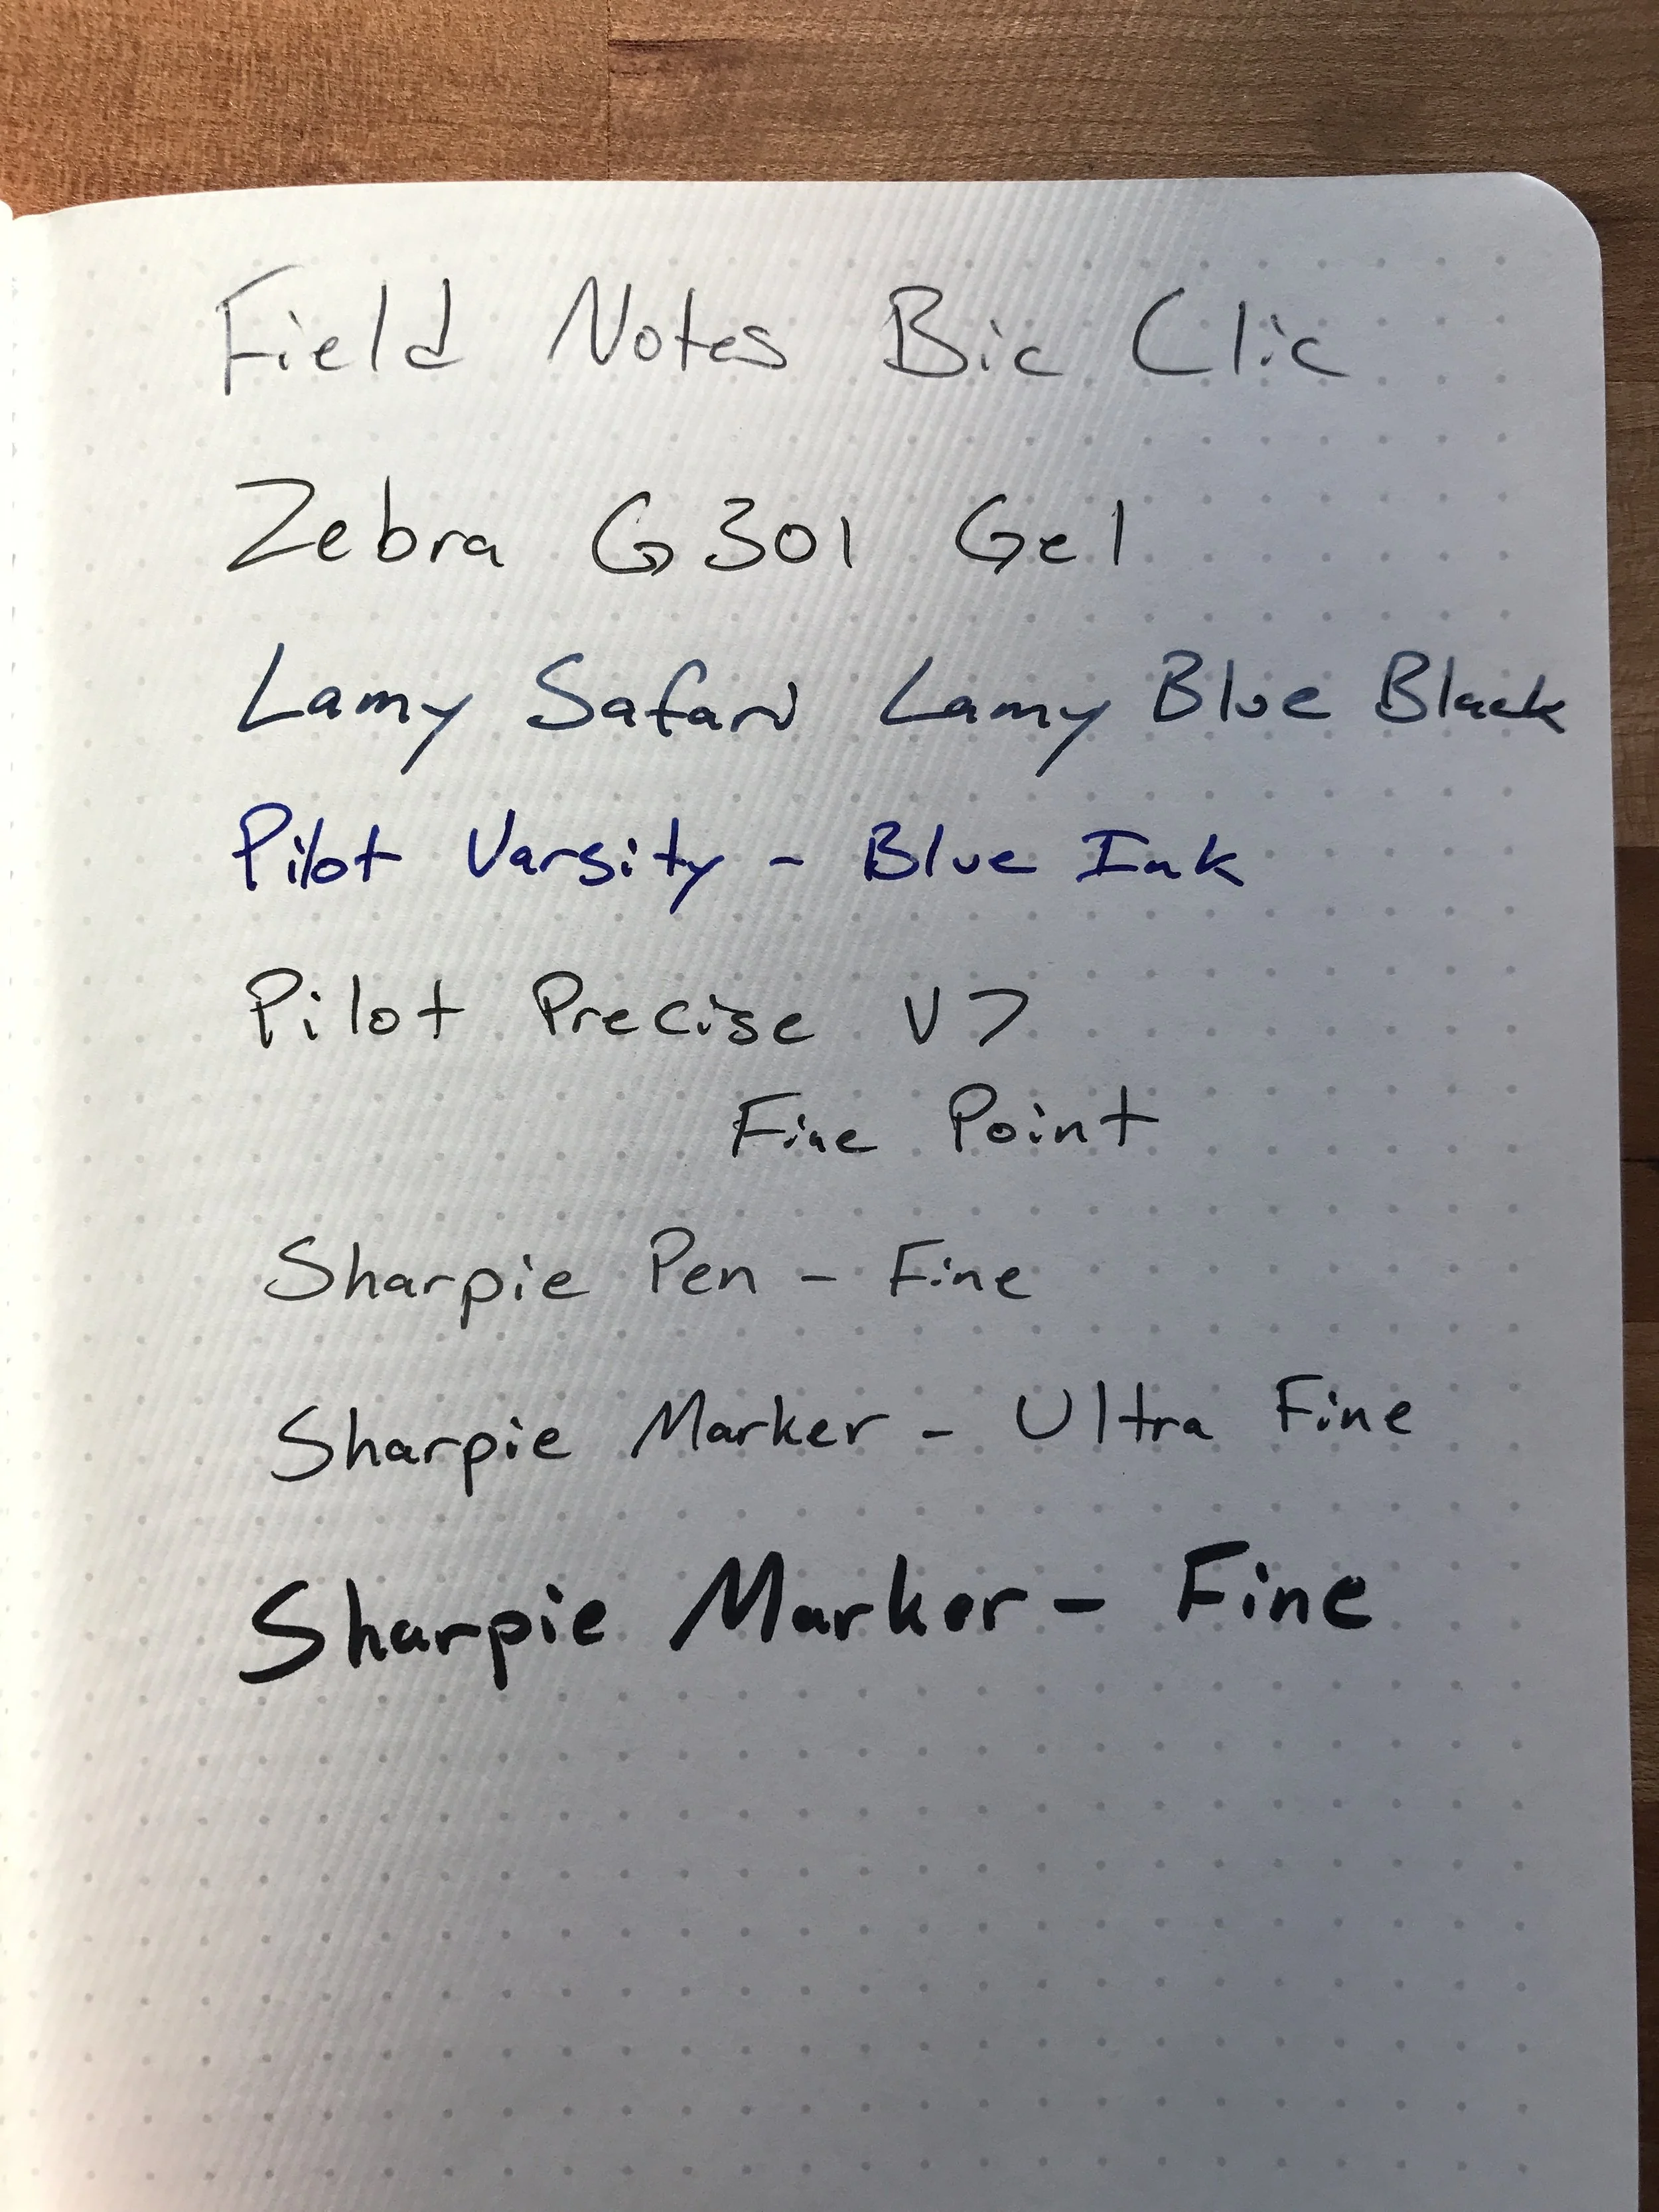 Field Notes Bic Clic
Zebra G301 Gel
Lamy Safari Lamy Blue Black
Pilot Varsity - Blue Ink
Pilot Precise V7
Fine Point
Sharpie Pen - Fine
Sharpie Marker - Ultra Fine
Sharpie Marker - Fine